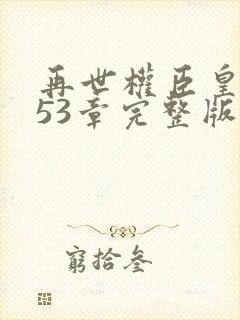 再世權臣皇
53章完整版
窮拾叁